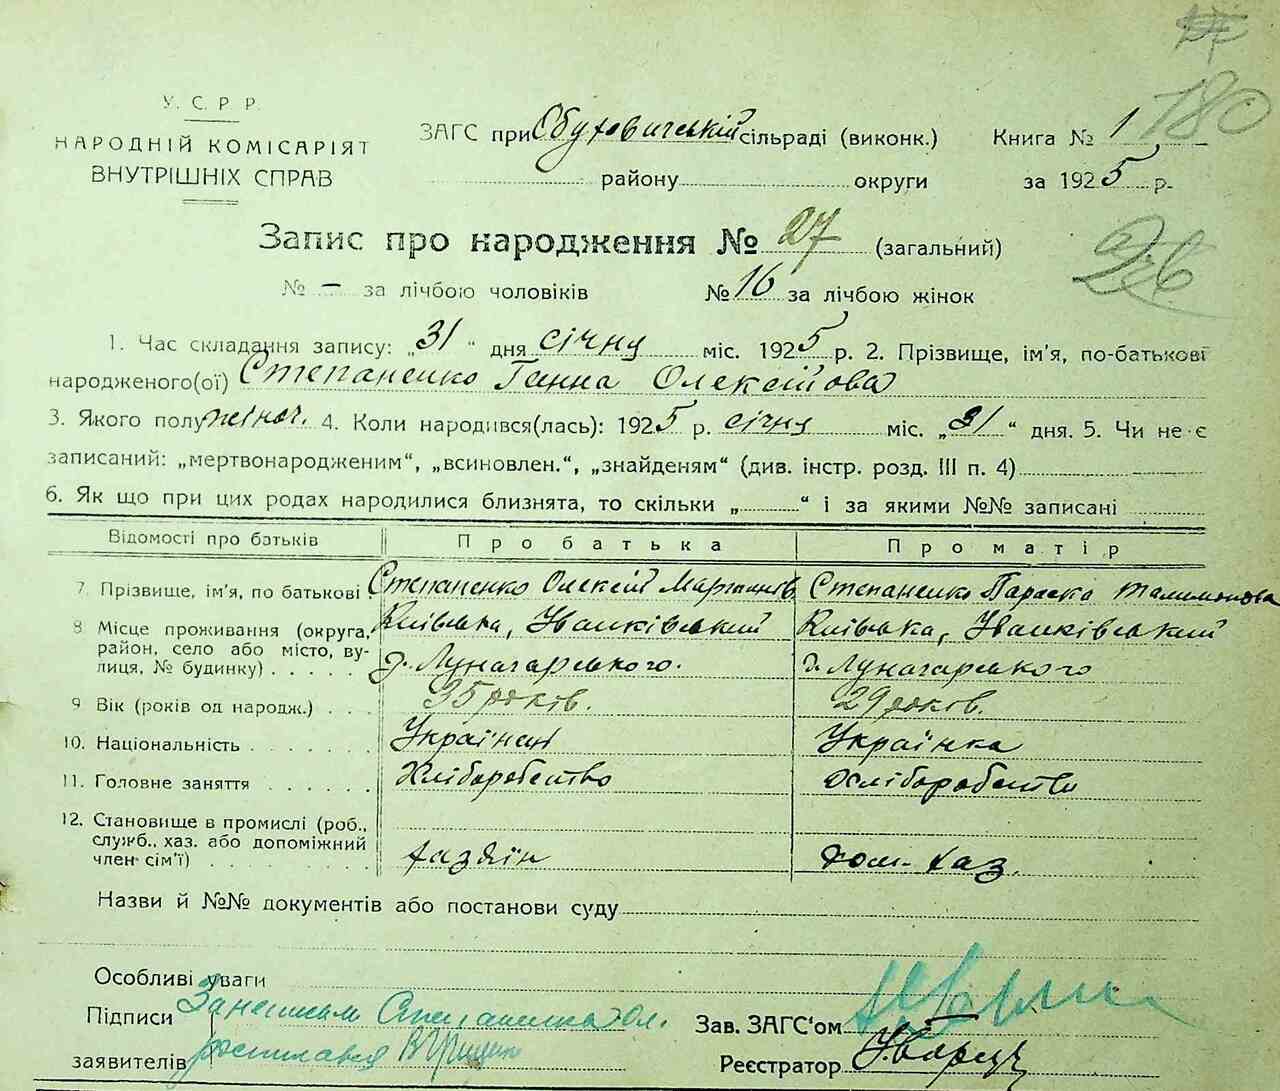 180
У. С. Р. Р.
НАРОДНІЙ КОМІСАРІЯТ
ВНУТРІШНІХ СПРАВ
ЗАГС при Обуховичській сільраді (виконк.) Книга № 1
району округи за 1925 р.
Запис про народження № 27 (загальний)
26
№ – за лічбою чоловіків № 16 за лічбою жінок
1. Час складання запису: „31“ дня січню міс. 1925 р. 2. Прізвище, ім'я, по-батькові
народженого(ої) Степаненко Ганна Олексійова
3. Якого полу жіноч. 4. Коли народився(лась): 1925 р. січню міс. „31“ дня. 5. Чи не є
записаний: „мертвонародженим“, „всиновлен.“, „знайденям“ (див. інстр. розд. III п. 4)
6. Як що при цих родах народилися близнята, то скільки „ “ і за якими №№ записані
Відомості про батьків Про батька Про матір
7. Прізвище, ім'я, по батькові Степаненко Олексій Степаненко Параска
8. Місце проживання (округа, Київська, Іванківський Київська, Іванківський
район, село або місто, ву-
лиця, № будинку) Луначарського. Луначарського
9 Вік (років од народж.) 35 років. 29 років.
10. Національність Українець Українка
11. Головне заняття Хліборобство Хліборобство
12. Становище в промислі (роб.,
служб., хаз. або допоміжний
член сім'ї) хазяїн дом-хаз.
Назви й №№ документів або постанови суду
Особливі уваги
Підписи Ол.
заявителів
Зав. ЗАГС'ом
Реєстратор